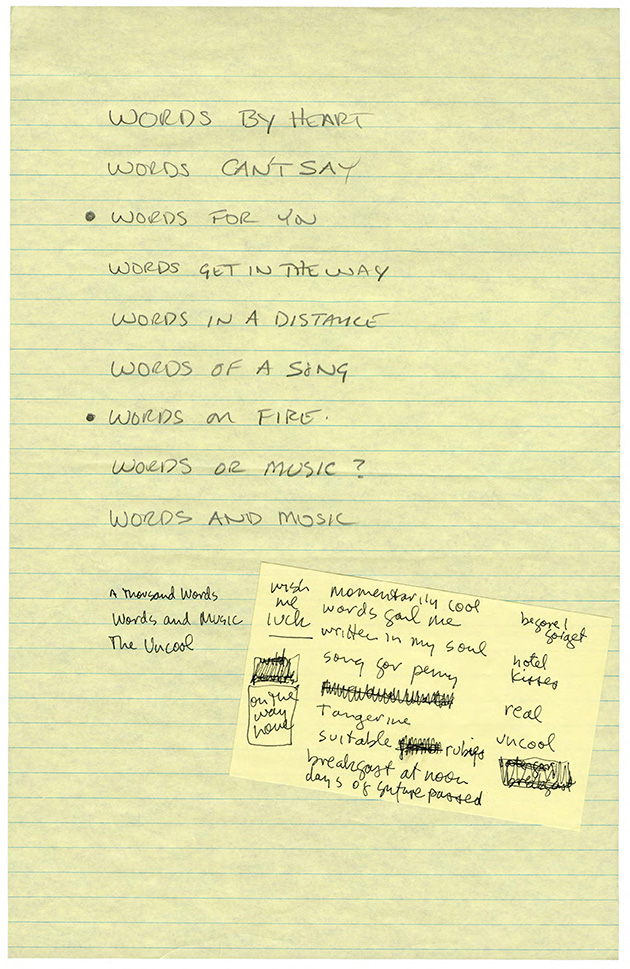 WORDS BY HEART
WORDS CAN'T SAY
• WORDS FOR YOU
WORDS GET IN THE WAY
WORDS IN A DISTANCE
WORDS OF A SONG
• WORDS ON FIRE.
WORDS OR MUSIC?
WORDS AND MUSIC
A Thousand Words
Words and Music
The Uncool
wish
me
luck
on the
way
home
momentarily cool
words fail me
written in my soul
song for penny
Tangerine
suitable rubies
breakfast at noon
days of future passed
before I
forget
hotel
kisses
real
uncool